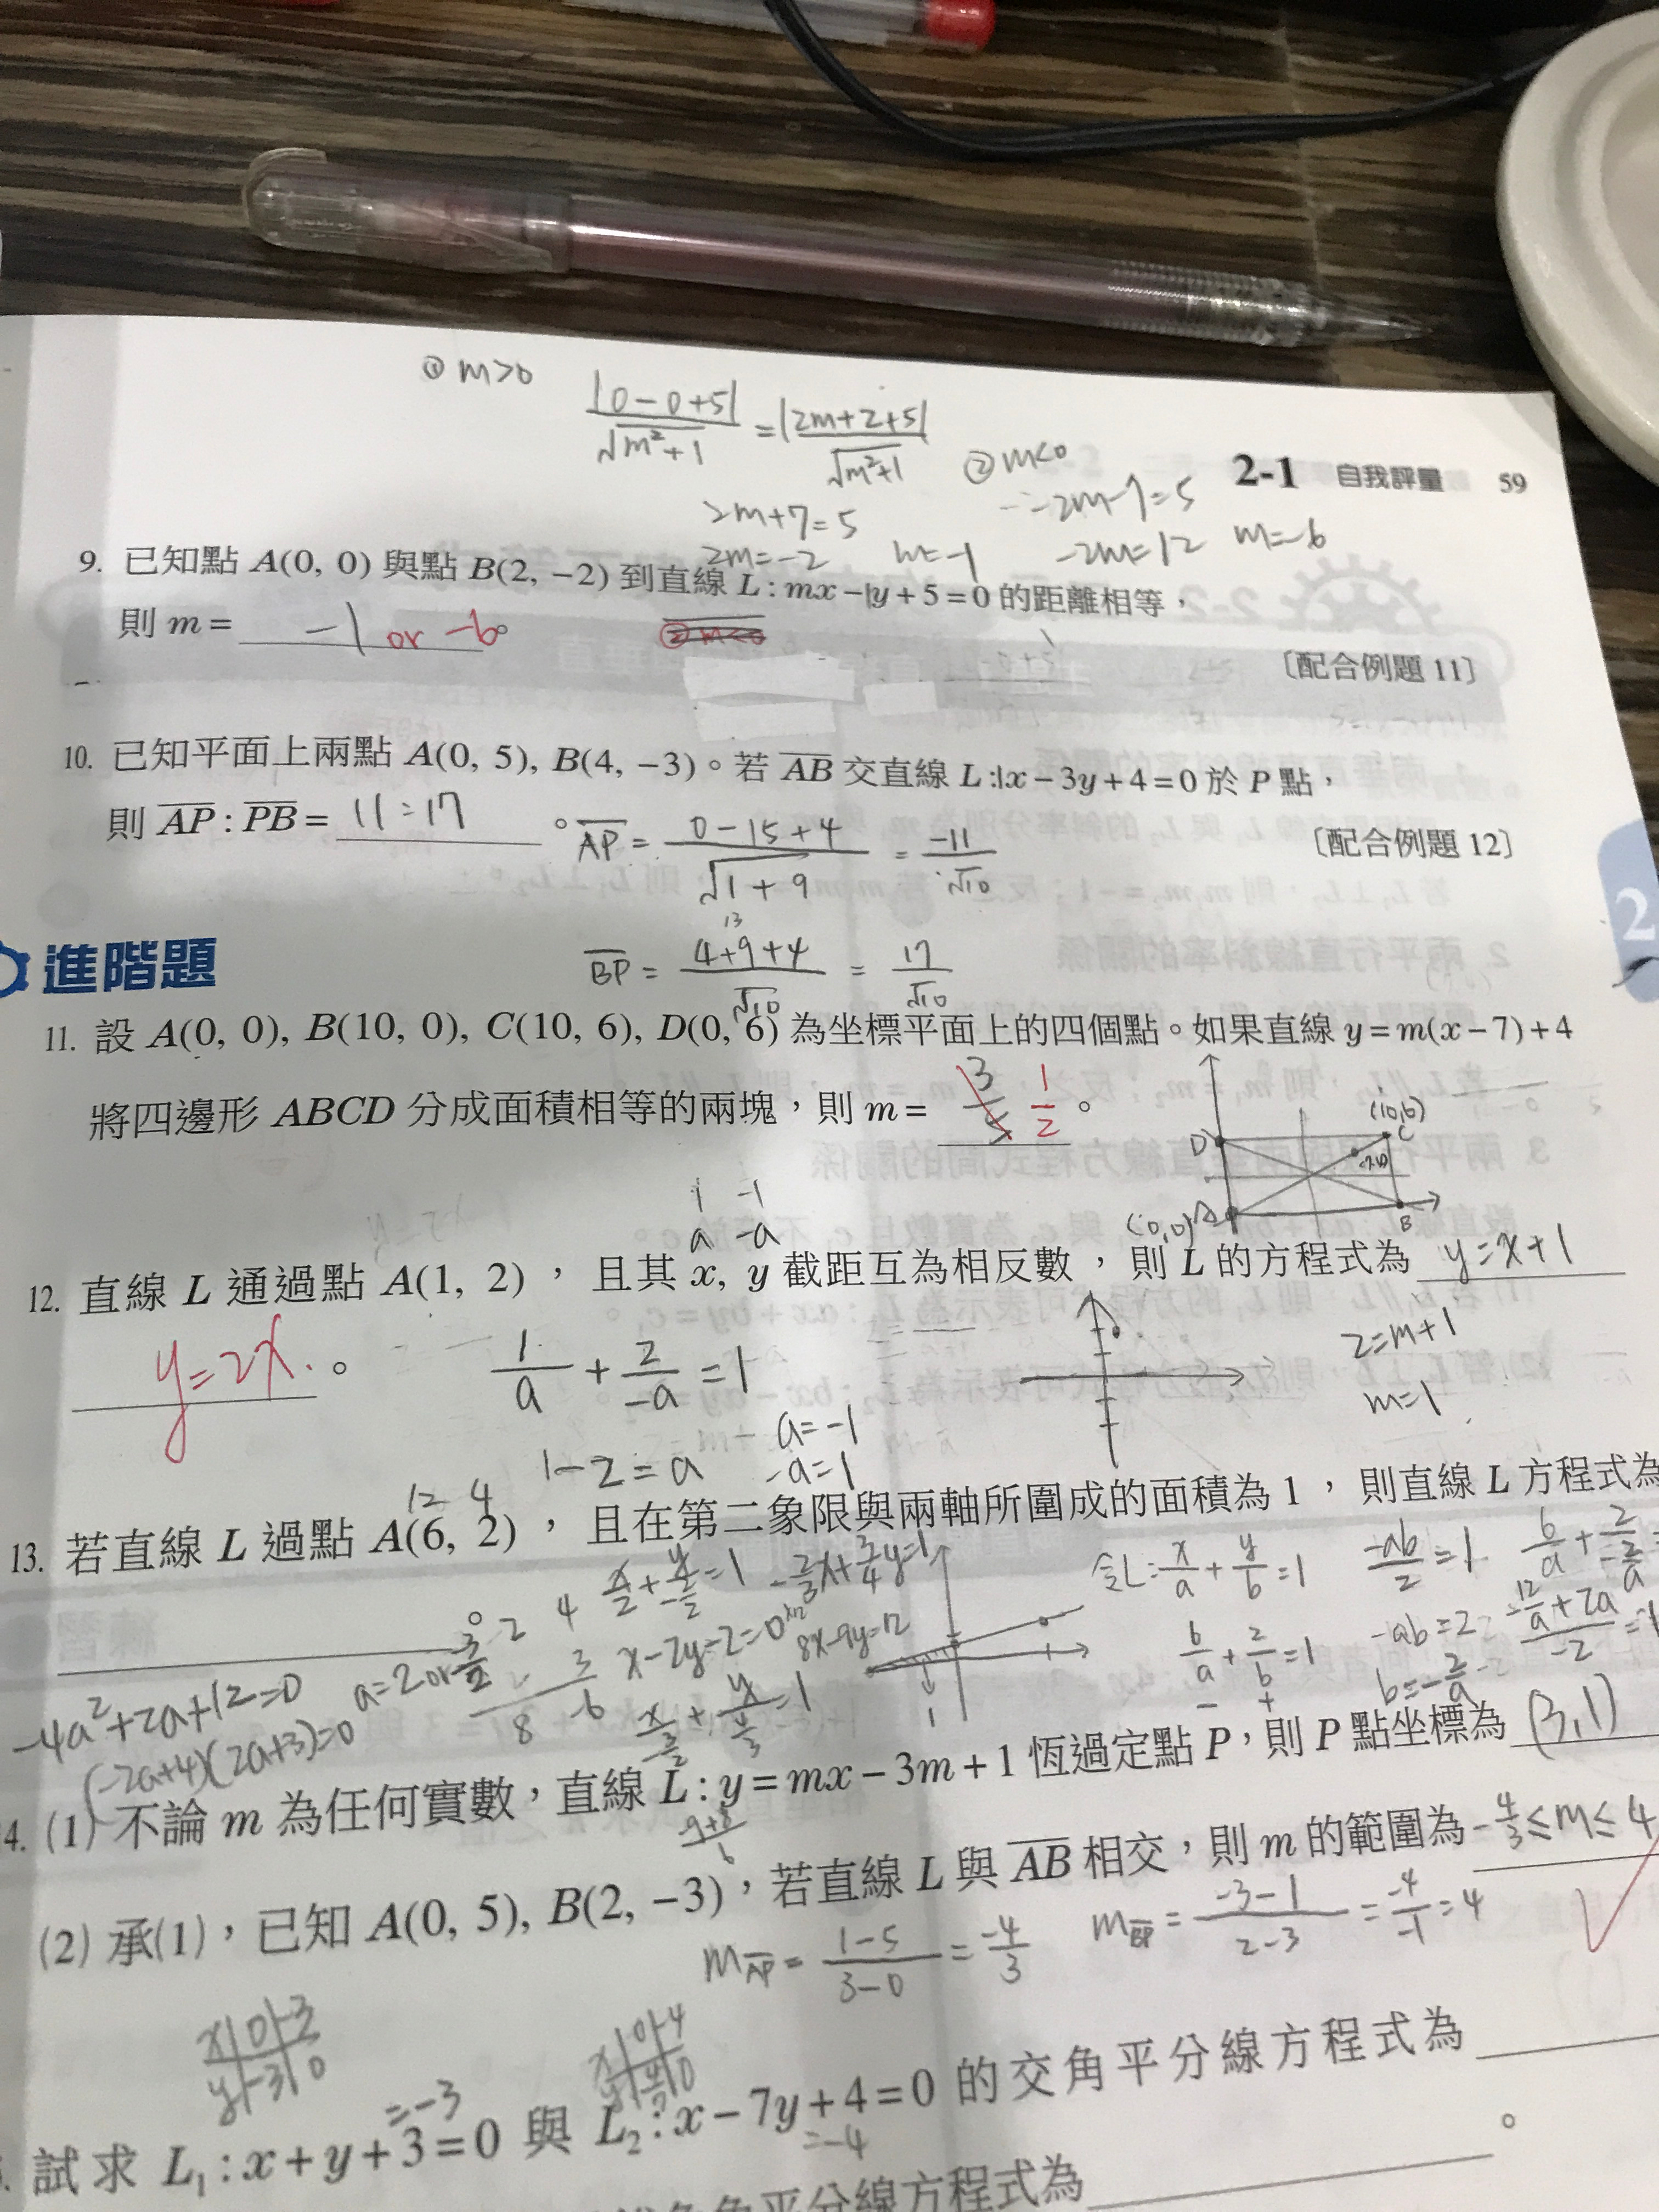 ① m>0
|0-0+5| / √m²+1 = |2m+2+5| / √m²+1
② m<0
2-1 自我評量 59
2m+7=5
-2m-7=5
2m=-2 m=-1 -2m=12 m=-6
9. 已知點 A(0, 0) 與點 B(2, -2) 到直線 L : mx-y+5=0 的距離相等，
則 m= -1 or -6。
② m<0
〔配合例題 11〕
10. 已知平面上兩點 A(0, 5), B(4, -3)。若 AB 交直線 L : x-3y+4=0 於 P 點，
則 AP : PB = 11:17 。
〔配合例題 12〕
AP = 0-15+4 / √1+9 = -11 / √10
13
BP = 4+9+4 / √10 = 17 / √10
2
進階題
11. 設 A(0, 0), B(10, 0), C(10, 6), D(0, 6) 為坐標平面上的四個點。如果直線 y=m(x-7)+4
將四邊形 ABCD 分成面積相等的兩塊，則 m= 3/5 1/2 。
(10,6)
D C
(0,0) A B
1 -1
a -a
12. 直線 L 通過點 A(1, 2)， 且其 x, y 截距互為相反數， 則 L 的方程式為 y=x+1
y=2x. 。
1/a + 2/-a = 1
2=m+1
m=1
1-2=a
a=-1
-a=1
12 4
13. 若直線 L 過點 A(6, 2)， 且在第二象限與兩軸所圍成的面積為 1， 則直線 L 方程式為
。
令L: x/a + y/b = 1
-ab/2 = 1
6/a + 2/b = 1
-ab=2
b=-2/a
x-2y-2=0
8x-9y=12
-4a²+2a+12=0
(-2a+4)(2a+3)=0
4. (1) 不論 m 為任何實數，直線 L : y=mx-3m+1 恆過定點 P，則 P 點坐標為 (3,1)
(2) 承(1)，已知 A(0, 5), B(2, -3)，若直線 L 與 AB 相交，則 m 的範圍為 -4/3≤m≤4
mAP = 1-5 / 3-0 = -4/3
mBP = -3-1 / 2-3 = -4/-1 = 4
x 0 -3
y -3 0
=-3
試求 L₁ : x+y+3=0 與 L₂ : x-7y+4=0 的交角平分線方程式為
=-4
。
角平分線方程式為